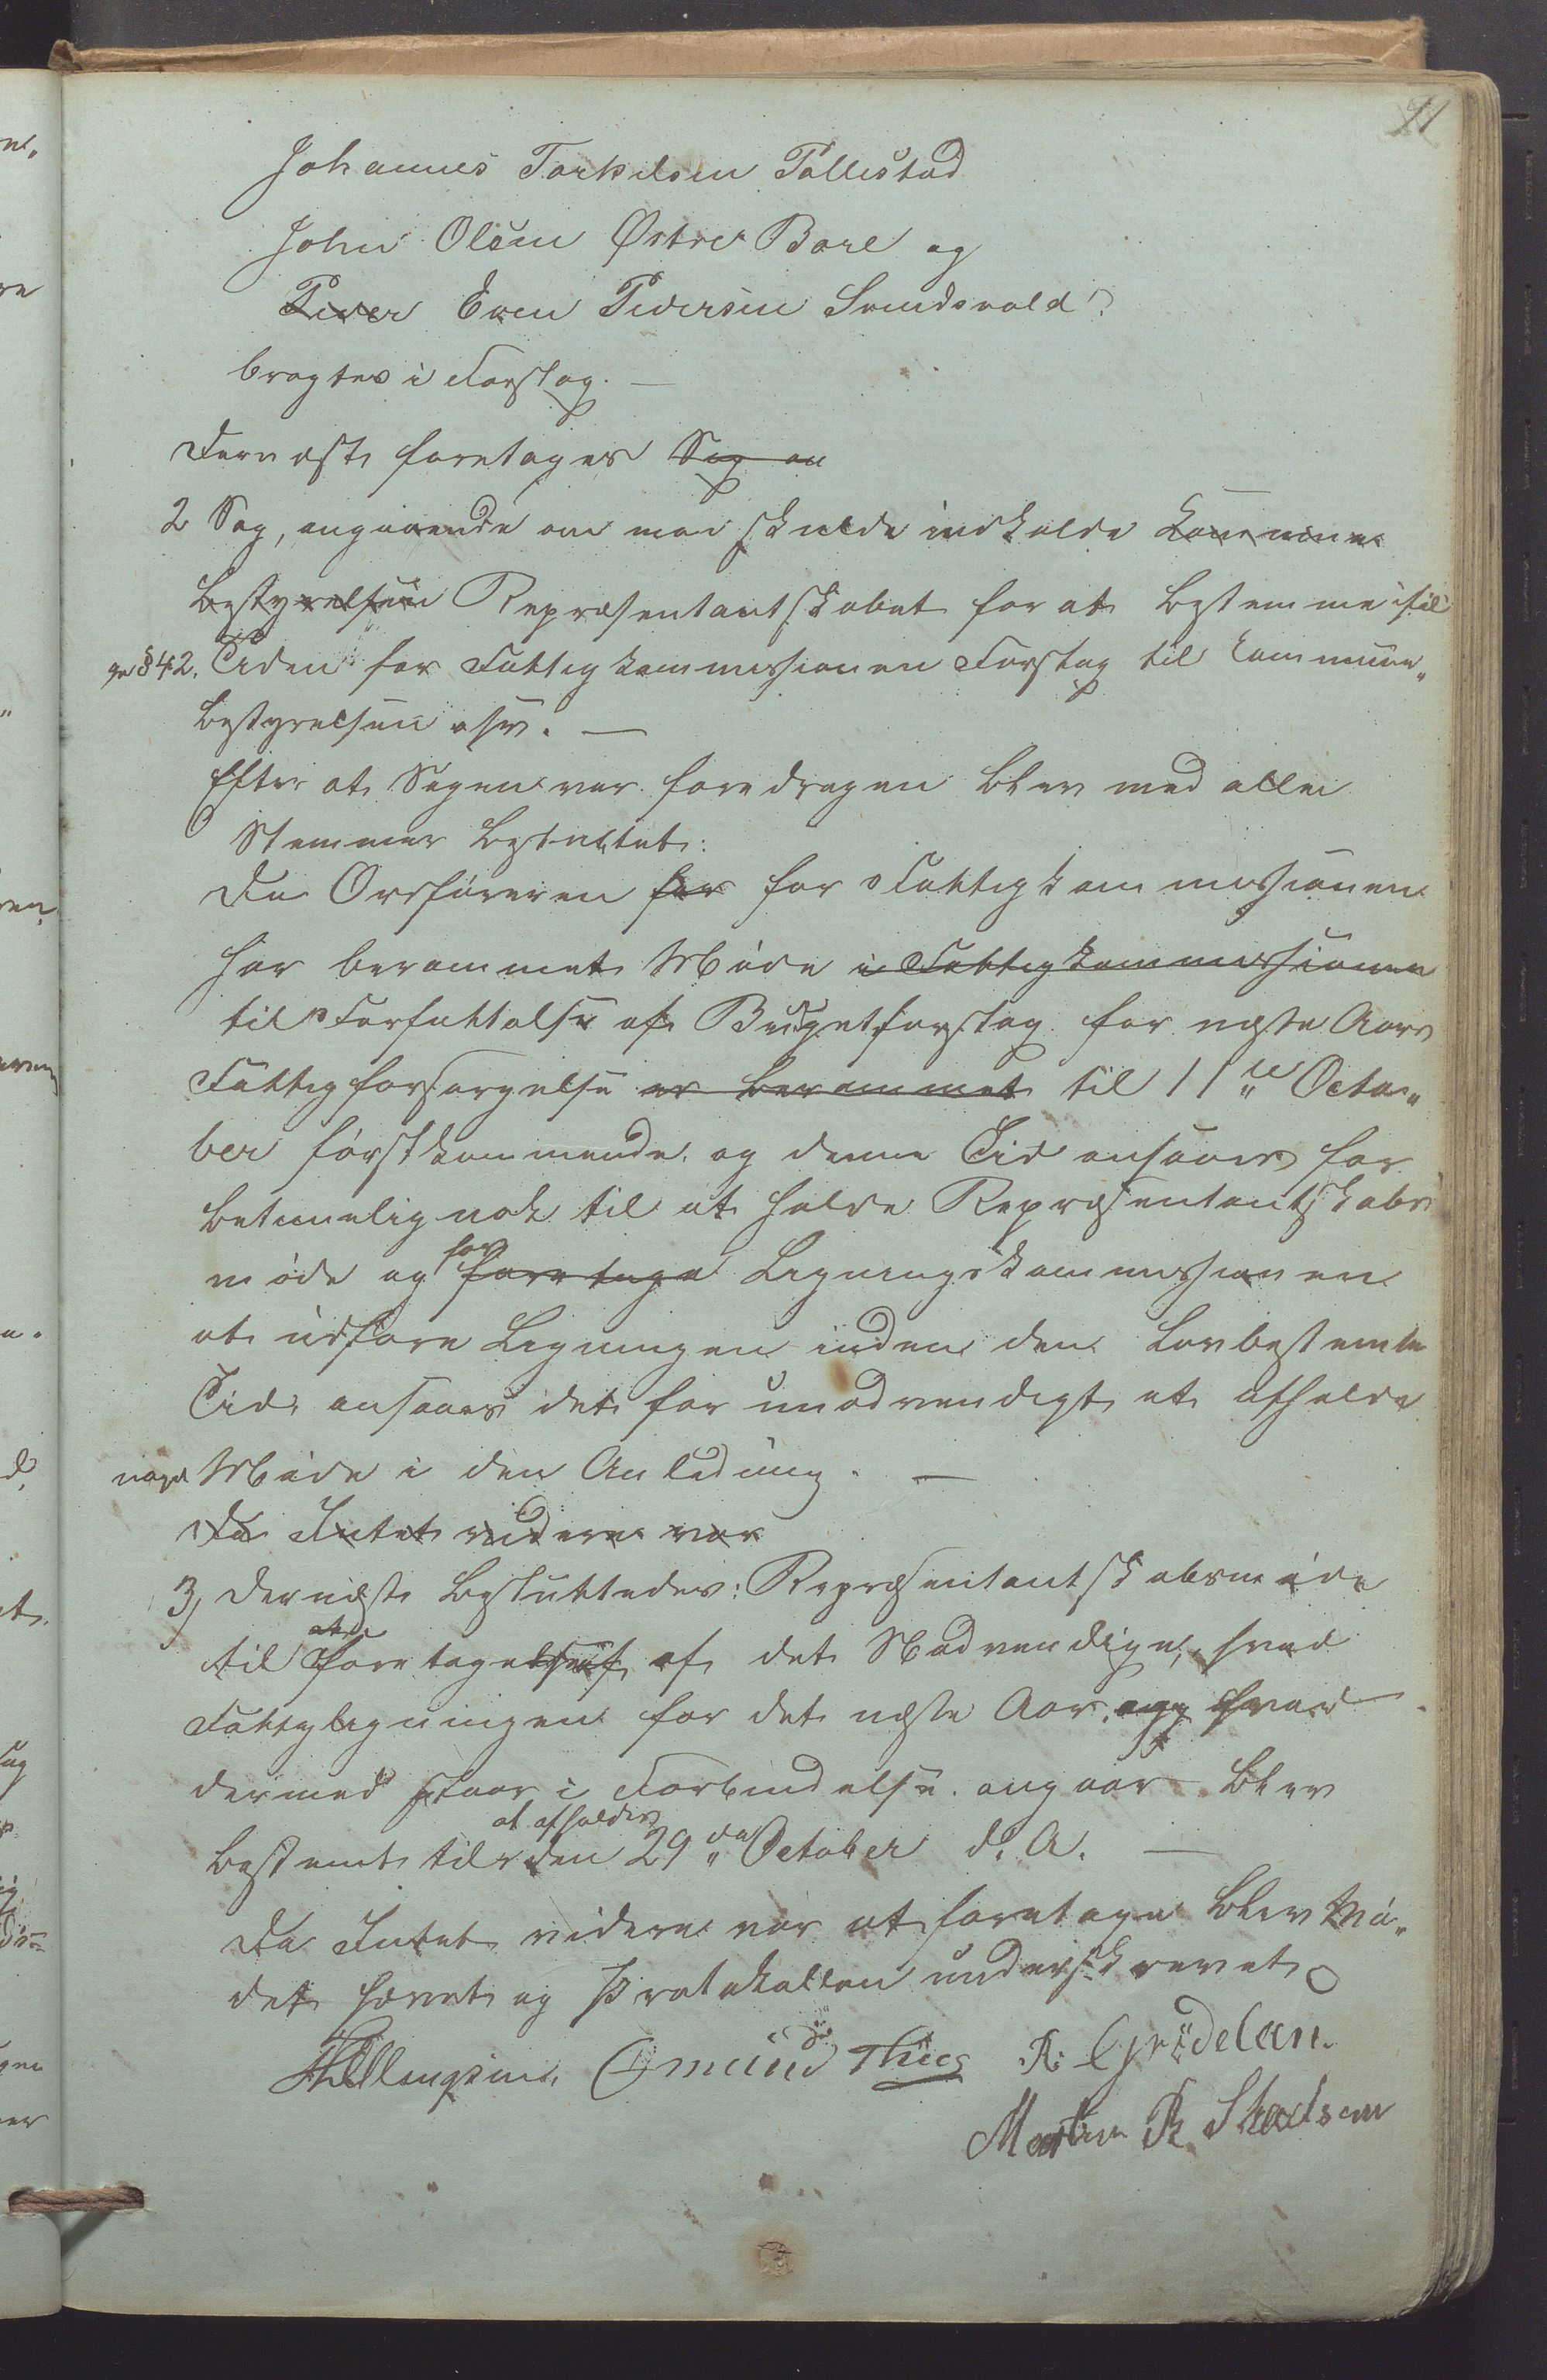 71
Johannes Torkelsen Pollestad
John Olsen Østre Bore og
Peder Even Pedersen Svendsvold?
bragtes i Forslag. —
Dernæst foretages Sag an
2 Sag, angaaende om man skulde indkalde Kommune
bestyrelsen Repræsentantskabet for at bestemme iføl
ge § 42. Tiden for Fattigkommissionen Forslag til Commune„
bestyrelsen osv. —
Efter at Sagen var foredragen blev med alle
Stemmer besluttet:
Da Ordføreren for for Fattigkommissionen
har berammet Møde i Fattigkommissionen
til Forfattelse af Budgetforslag for næste Aars
Fattigforsørgelse er berammet til 11te Octo„
ber førstkommende og denne Tid ansaaes for
betimelig nok til at holde Repræsentantskabs
møde og for foretage Ligningskommissionen
at udføre Ligningen inden den lovbestemte
Tid ansaaes det for unødvendigt at afholde
noget Møde i den Anledning. —
Da Intet videre var
3, Dernæst besluttedes: Repræsentantskabsmøde
til at foretagelse af det Nødvendige, hvad
Fattigligningen for det næste Aar, og hvad
dermed staar i Forbindelse angaar blev
bestemt til at afholdes den 29de October d. A. —
Da Intet videre var at foretage blev Mø„
det hævet og Protokollen underskrevet
Omund Thies R. Grødelan.
Martin R. Skadsem